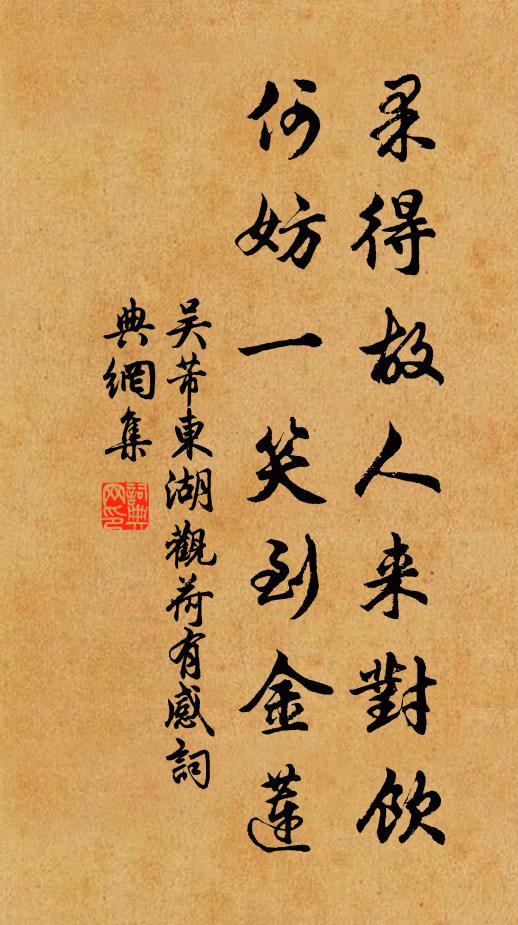 果得故人来對飲
何妨一笑到金蓮
吴芾東湖觀荷有感詞
典網集
詞典網印